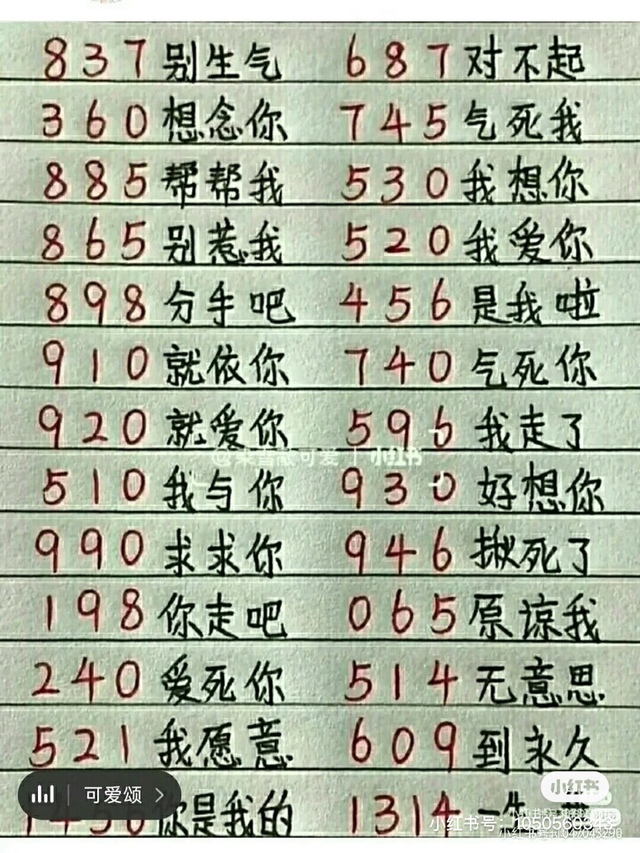 837 别生气 687 对不起
360 想念你 745 气死我
885 帮帮我 530 我想你
865 别惹我 520 我爱你
898 分手吧 456 是我啦
910 就依你 740 气死你
920 就爱你 596 我走了
可爱 | 小红书
510 我与你 930 好想你
990 求求你 946 揪死了
198 你走吧 065 原谅我
240 爱死你 514 无意思
521 我愿意 609 到永久
可爱颂
小红书
你是我的 1314 一生
小红书号：